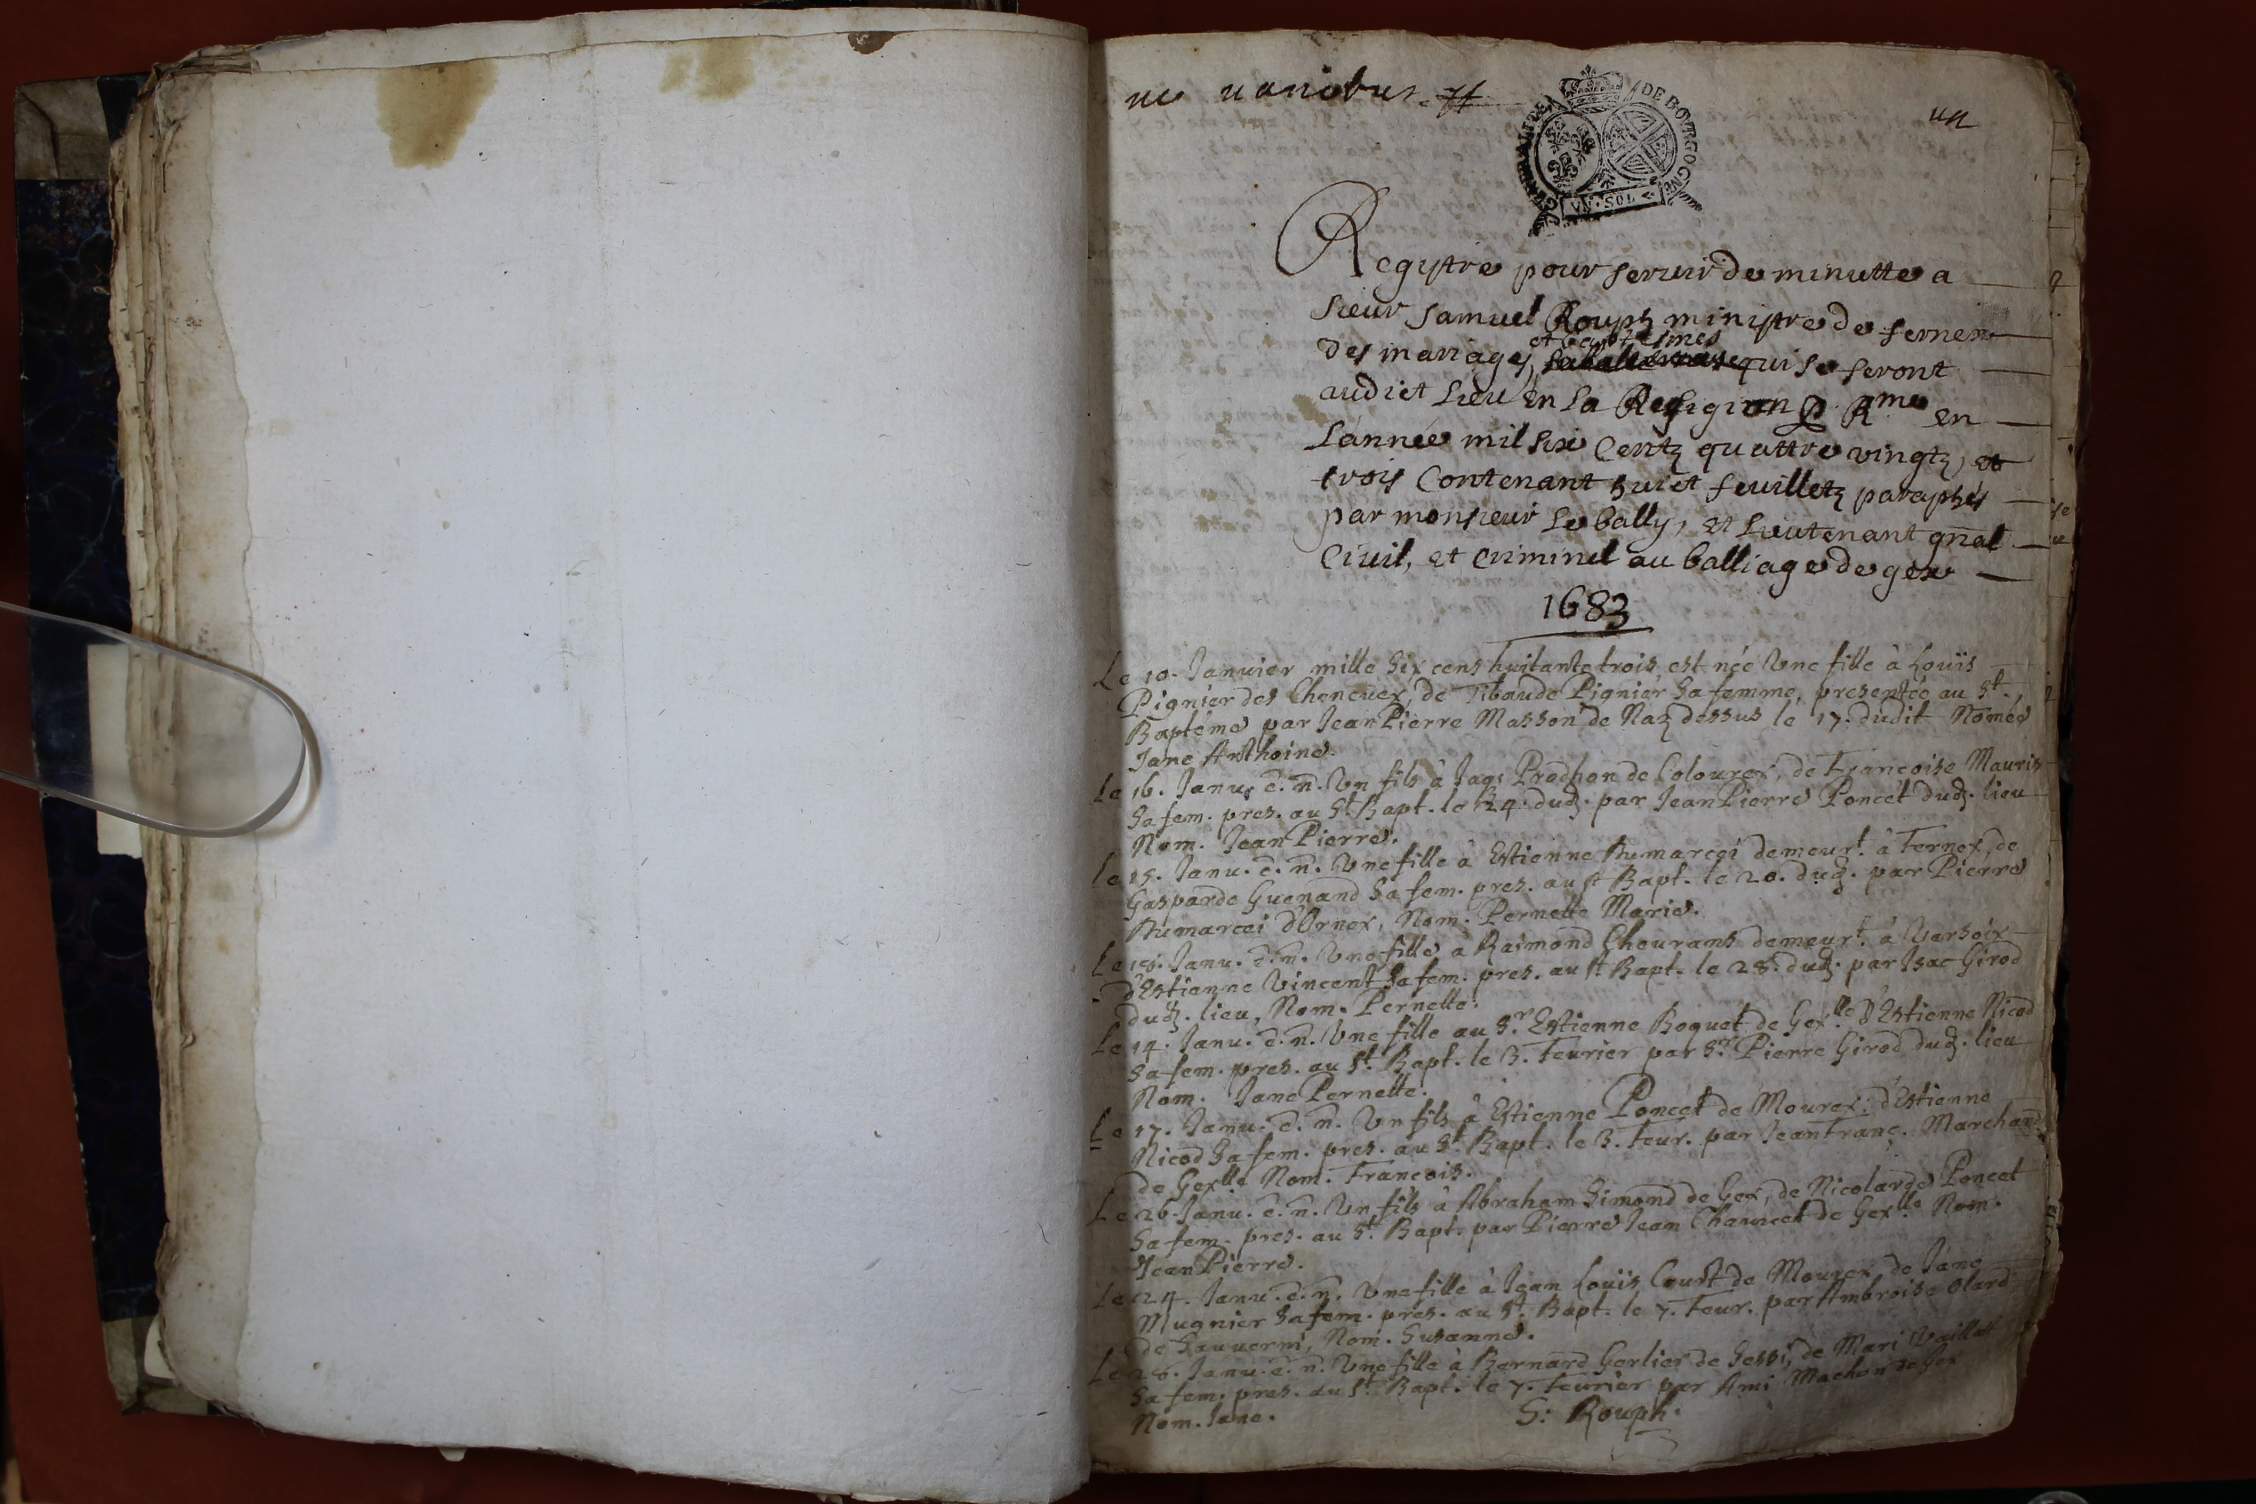 ne varietur
un
GENERALITE DE BOVRGOGNE
VN·SOL
Regystre pour servir de minutte a
sieur samuel Rouph ministre de fernex
et baptesmes
des mariages, qui se feront
audict lieu en la Religion P. Rme en
l'année mil six centz quattre vingtz, et
trois contenant huict feuilletz paraphés
par monsieur le bally, et lieutenant gnal
civil, et criminel au balliage de gex
1683
Le 10. Janvier mille six cens huitante trois, est née Vne fille à Louïs
Pignier des Cheneuex, de Tibaude Pignier sa femme, presentée au St.
Baptéme par Jean Pierre Masson de Naz dessus le 17. dudit Nomée
Jane Anthoine.
Le 16. Janu. e. n. Vn fils à Jaq; Prodhon de Colourex, de Françoise Mauris
sa fem. pres. au St. Bapt. le 24. dud. par Jean Pierre Poncet dud. lieu
Nom. Jean Pierre.
Le 15. Janu. e. n. Vne fille à Estienne Humarcei demeurt. à Fernex, de
Gasparde Guenand sa fem. pres. au St Bapt. le 20. dud. par Pierre
Humarcei d'Ornex, Nom. Pernette Marie.
Le Janu. e. n. Vne fille à Raimond Cheurans demeurt. à Versoix
d'Estienne Vincent sa fem. pres. au St. Bapt. le 28. dud. par Isac Girod
dud. lieu, Nom. Pernette.
Le 14. Janu. e. n. Vne fille au Sr. Estienne Roquet de Gexlle d'Estienne Nicod
sa fem. pres. au St. Bapt. le 3. Feurier par Sr. Pierre Girod dud. lieu
Nom. Jane Pernette.
Le 17. Janu. e. n. Vn fils à Estienne Poncet de Mourex, d'Estienne
Nicod sa fem. pres. au St. Bapt. le 3. Feur. par Jean Franç. Marchand
de Gexlle Nom. François.
Le 26. Janu. e. n. Vn fils à Abraham Simond de Gex, de Nicolarde Poncet
sa fem. pres. au St. Bapt. par Pierre Jean Chauuet de Gexlle Nom.
Jean Pierre.
Le 24. Janu. e. n. Vne fille à Jean Louïs Court de Mourex de Jane
Mugnier sa fem. pres. au St. Bapt. le 7. Feur. par Ambroise Olard
de Sauuerni, Nom. Susanne.
Le 28. Janu. e. n. Vne fille à Bernard Gerlier de Sessi, de Mari
sa fem. pres. au St. Bapt. le 7. Feurier par Ami Machon de Gex
Nom. Jane.
S: Rouph.